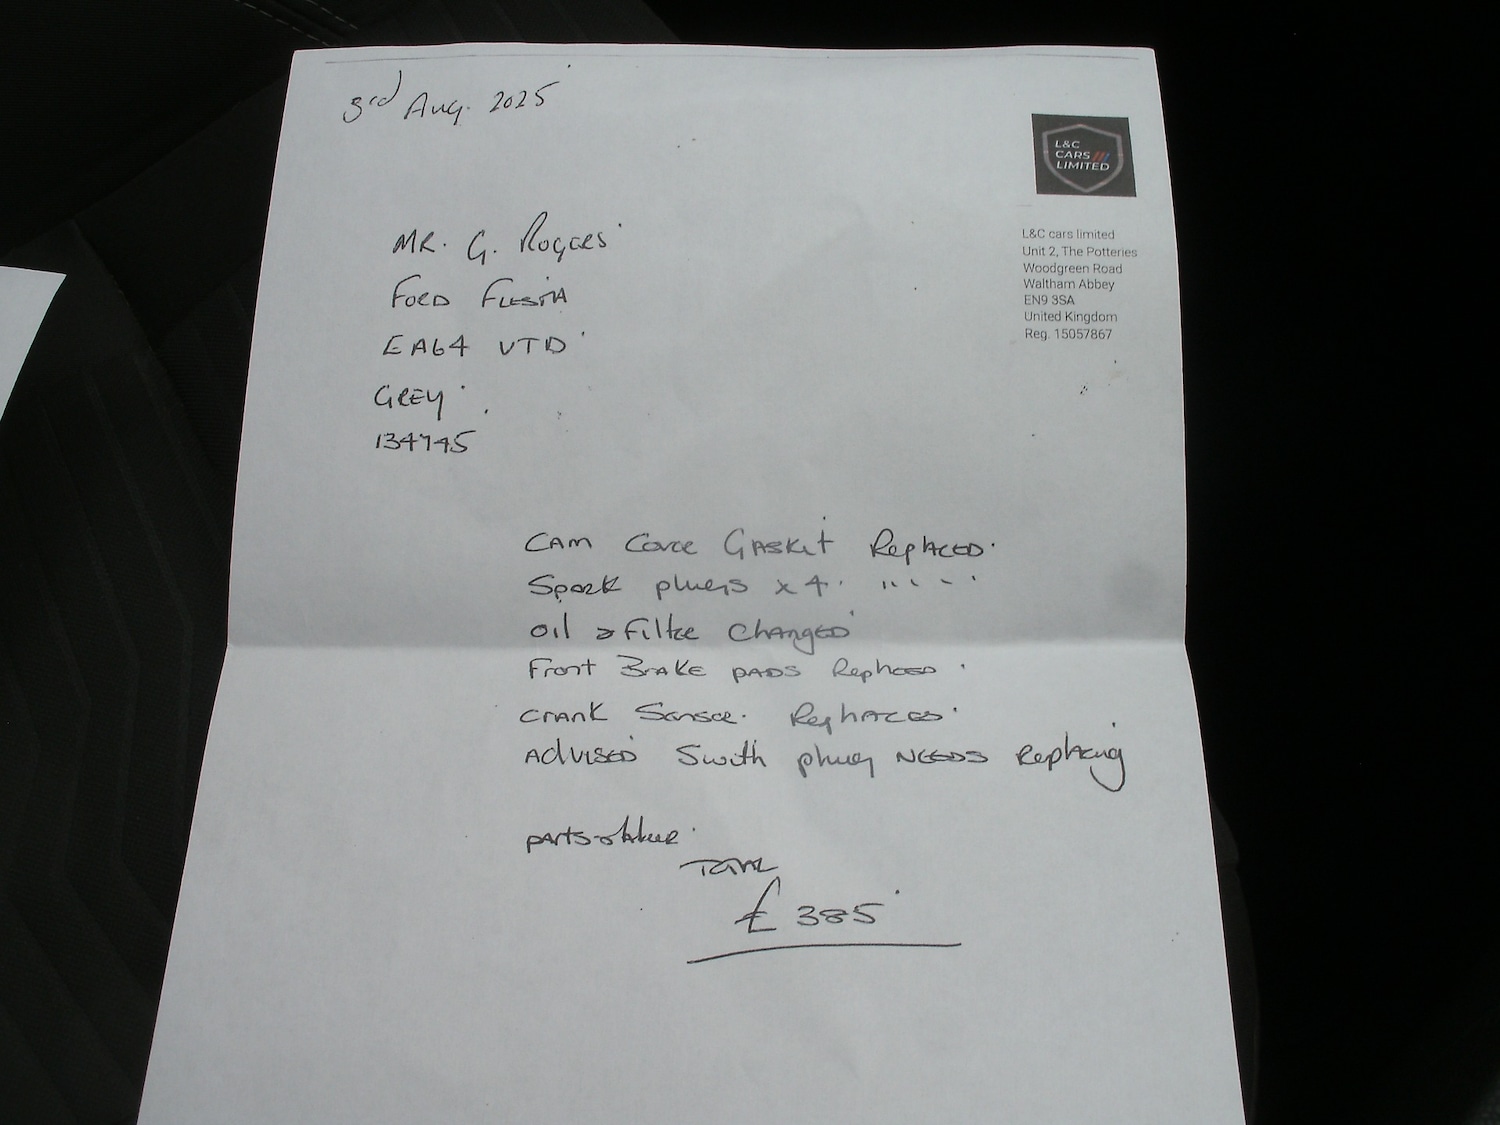 3rd Aug. 2025
L&C
CARS
LIMITED
L&C cars limited
Unit 2, The Potteries
Woodgreen Road
Waltham Abbey
EN9 3SA
United Kingdom
Reg. 15057867
MR. G. Rogers
Ford Fiesta
EA64 VTD
GREY
134745
CAM Cover Gasket Replaced.
Spark plugs x 4. " " " "
Oil & Filter Changed
Front Brake pads Replaced.
Crank Sensor. Replaced.
Advised Swith plug NEEDS Replacing
parts & labour.
Total
£385